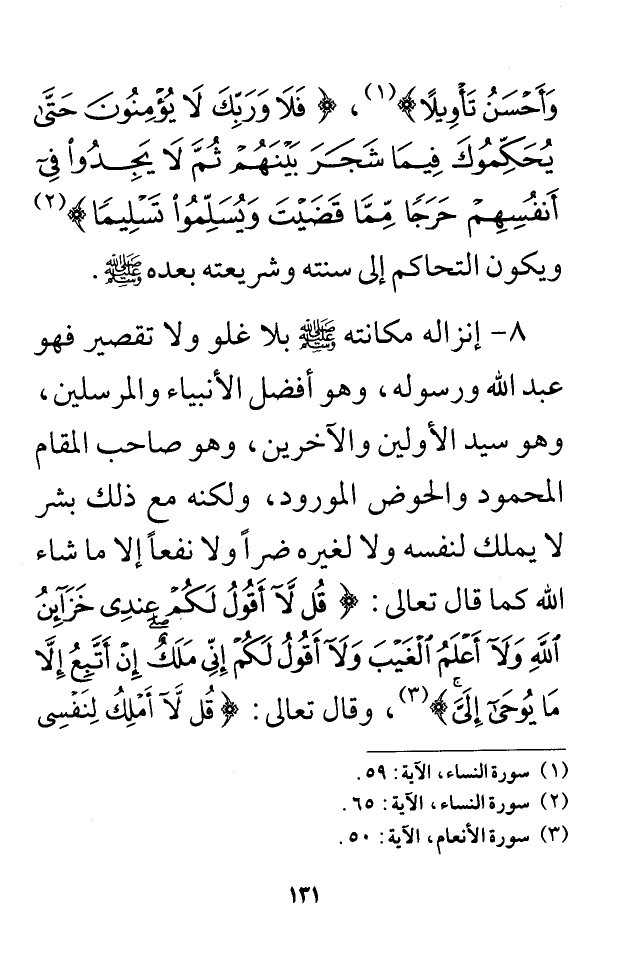 وَأَحْسَنُ تَأْوِيلًا﴾(١)، ﴿ فَلَا وَرَبِّكَ لَا يُؤْمِنُونَ حَتَّىٰ
يُحَكِّمُوكَ فِيمَا شَجَرَ بَيْنَهُمْ ثُمَّ لَا يَجِدُواْ فِىٓ
أَنفُسِهِمْ حَرَجًا مِّمَّا قَضَيْتَ وَيُسَلِّمُواْ تَسْلِيمًا ﴾(٢)
ويكون التحاكم إلى سنته وشريعته بعده ﷺ .
٨- إنزاله مكانته ﷺ بلا غلو ولا تقصير فهو
عبد الله ورسوله، وهو أفضل الأنبياء والمرسلين،
وهو سيد الأولين والآخرين، وهو صاحب المقام
المحمود والحوض المورود، ولكنه مع ذلك بشر
لا يملك لنفسه ولا لغيره ضراً ولا نفعاً إلا ما شاء
الله كما قال تعالى: ﴿ قُل لَّآ أَقُولُ لَكُمْ عِندِى خَزَآئِنُ
ٱللَّهِ وَلَآ أَعْلَمُ ٱلْغَيْبَ وَلَآ أَقُولُ لَكُمْ إِنِّى مَلَكٌ ۖ إِنْ أَتَّبِعُ إِلَّا
مَا يُوحَىٰٓ إِلَىَّ ۚ ﴾(٣)، وقال تعالى: ﴿ قُل لَّآ أَمْلِكُ لِنَفْسِى
(١) سورة النساء، الآية: ٥٩.
(٢) سورة النساء، الآية: ٦٥.
(٣) سورة الأنعام، الآية: ٥٠.
١٣١